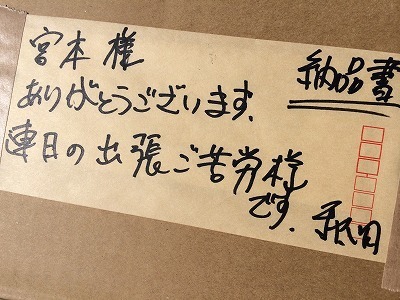 宮本様
納品書
ありがとうございます.
連日の出張ご苦労様
です.